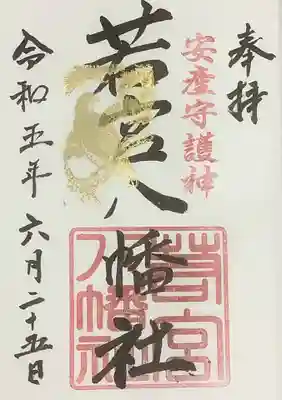 奉拝
安産守護神
若宮八幡社
若宮
八幡社
令和五年六月二十五日